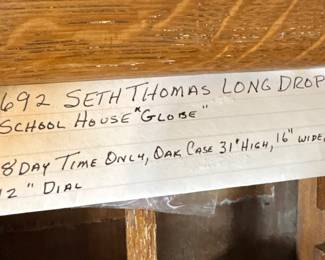 692 SETH THOMAS LONG DROP
SCHOOL HOUSE "GLOBE"
8 DAY TIME ONLY, OAK CASE 31" HIGH, 16" WIDE,
12" DIAL